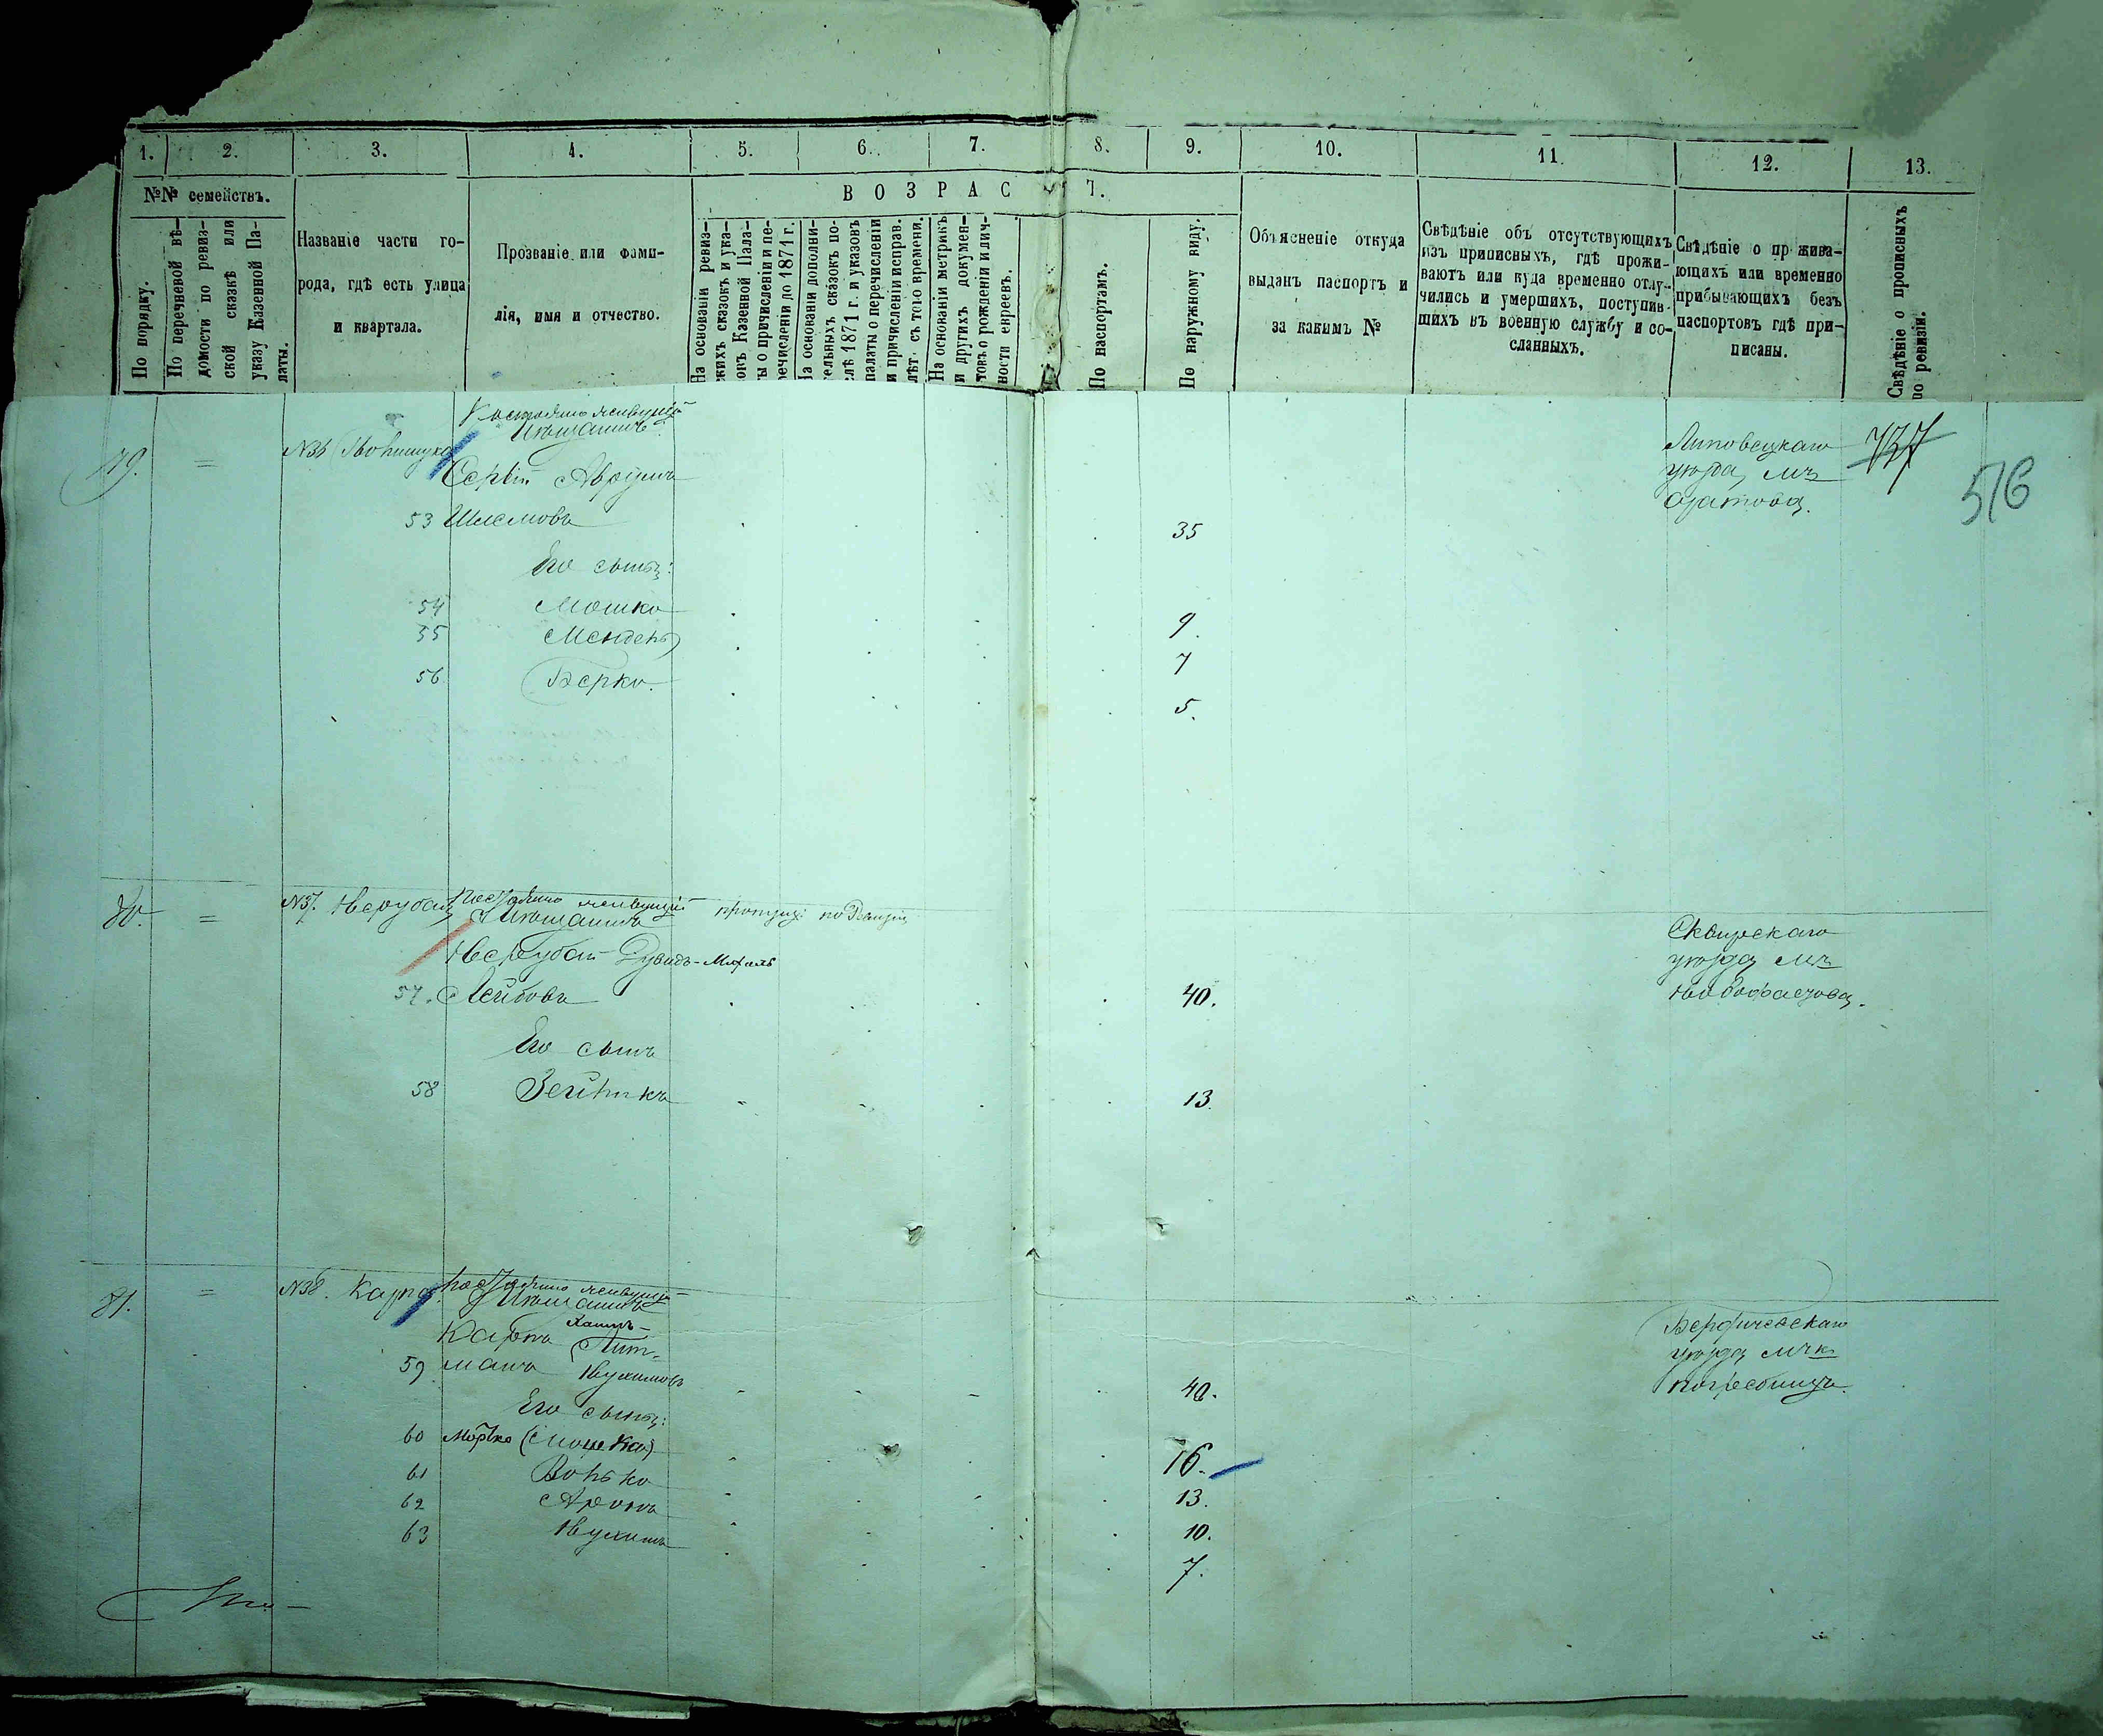 1. 2. 3. 4. 5. 6. 7. 8. 9. 10. 11. 12. 13.
№№ семействъ.
В О З Р А С Т.
По порядку.
По перечневой вѣ-
домости по ревиз-
ской сказкѣ или
указу Казенной Па-
латы.
Названіе части го-
рода, гдѣ есть улица
и квартала.
Прозваніе или фами-
лія, имя и отчество.
На основаніи ревиз-
скихъ сказокъ и ука-
зовъ Казенной Пала-
ты о причисленіи и пе-
речисленіи до 1871 г.
На основаніи дополни-
тельныхъ сказокъ по-
слѣ 1871 г. и указовъ
палаты о перечисленіи
и причисленіи исправ.
лѣт. съ того времени.
На основаніи метрикъ
и другихъ докумен-
товъ о рожденіи и лич-
ности евреевъ.
По паспортамъ.
По наружному виду.
Объясненіе откуда
выданъ паспортъ и
за какимъ №
Свѣдѣніе объ отсутствующихъ
изъ приписныхъ, гдѣ прожи-
ваютъ или куда временно отлу-
чились и умершихъ, поступив-
шихъ въ военную службу и со-
сланныхъ.
Свѣдѣніе о прожива-
ющихъ или временно
прибывающихъ безъ
паспортовъ гдѣ при-
писаны.
Свѣдѣніе о прописныхъ
по ревизіи.
Постоянно живущій
Мѣщанинъ
79. = №36
Аврумъ
53 Шлемовъ 35
Его сыны:
54 Мошко 9
55 Мендель 7
56 Берко. 5.
Липовецкаго
уѣзда, мч
Оратова.
737
516
80. = №37. Нерубай Постоянно живущій
Мѣщанинъ
Нерубай Дувидъ-
57. Лейбовъ 40.
Его сынъ
58 Зейликъ 13
Сквирскаго
уѣзда мч
Новофастова.
81. = №38. Карпъ Постоянно живущій
Мѣщанинъ
Карпъ Хаимъ-
Пит-
59 манъ Нухимовъ 40.
Его сыны:
60 (Мошка) 16.
61 Волько 13.
62 Аронъ 10.
63 Нухимъ 7.
Бердичевскаго
уѣзда мчк
Погребища.